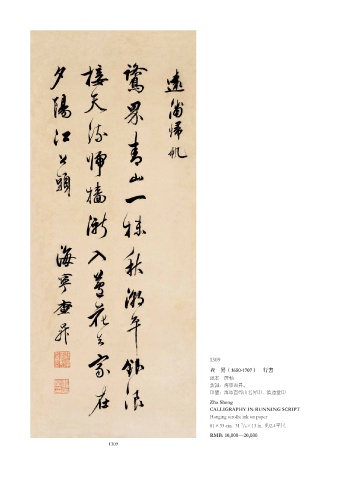 遠浦歸帆
鷺界青山一抹秋潮平銀浪
接天流歸檣漸入蘆花去家在
夕陽江上頭 海寧查昇
1309
查 昇(1650-1707) 行書
款識:海寧查昇。
Zha Sheng
CALLIGRAPHY IN RUNNING SCRIPT
Hanging scroll; ink on paper
RMB: 10,000—20,000
1309